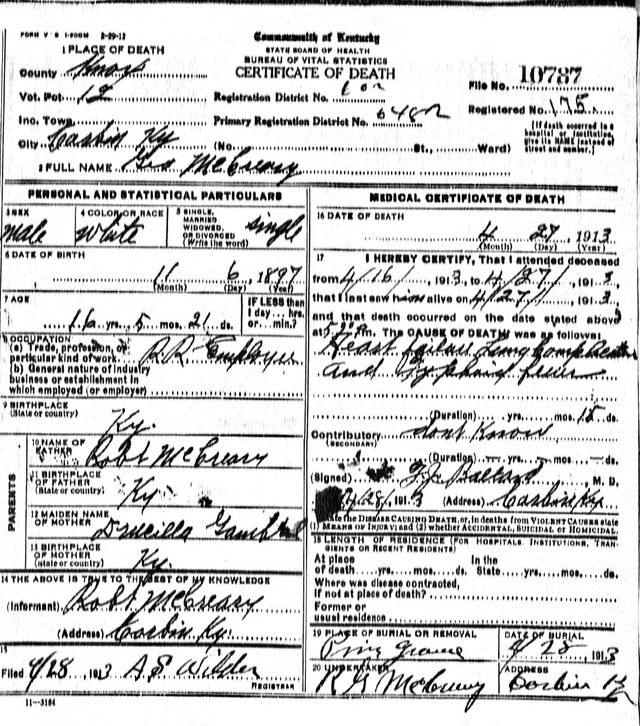 FORM V S 1-500M 2-29-12
Commonwealth of Kentucky
STATE BOARD OF HEALTH
BUREAU OF VITAL STATISTICS
CERTIFICATE OF DEATH
1 PLACE OF DEATH
County Knox
Vot. Pct 12
Inc. Town
City Corbin Ky (No. St., Ward)
Registration District No.
Primary Registration District No.
File No. 10787
Registered No. 175.
[If death occurred in a hospital or institution, give its NAME instead of street and number.]
2 FULL NAME Geo McCreary
PERSONAL AND STATISTICAL PARTICULARS
3 SEX
male
4 COLOR OR RACE
White
5 SINGLE, MARRIED WIDOWED, OR DIVORCED (Write the word)
single
6 DATE OF BIRTH
11 6 1897
(Month) (Day) (Year)
7 AGE
16 yrs. 5 mos. 21 ds.
IF LESS than 1 day.... hrs. or.... min.?
8 OCCUPATION
(a) Trade, profession, or particular kind of work R.R. Employee
(b) General nature of industry business or establishment in which employed (or employer)
9 BIRTHPLACE
(State or country) Ky.
PARENTS
10 NAME OF FATHER Robt McCreary
11 BIRTHPLACE OF FATHER (State or country) Ky
12 MAIDEN NAME OF MOTHER Drucilla
13 BIRTHPLACE OF MOTHER (State or country) Ky.
14 THE ABOVE IS TRUE TO THE BEST OF MY KNOWLEDGE
(Informant) Robt McCreary
(Address) Corbin Ky.
15
Filed 4/28 1913 A S Wilder
REGISTRAR
11—3184
MEDICAL CERTIFICATE OF DEATH
16 DATE OF DEATH
4 27, 1913
(Month) (Day) (Year)
17 I HEREBY CERTIFY, That I attended deceased
from 4/16/, 1913, to 4/27/, 1913,
that I last saw him alive on 4/27/, 1913,
and that death occurred on the date stated above
at m. The CAUSE OF DEATH was as follows:
Heart failure
and Typhoid fever
(Duration) yrs. mos. 15 ds.
Contributory dont Know
(SECONDARY)
(Duration) yrs. mos. ds.
(Signed) Ballard, M. D.
4/28, 1913 (Address) Corbin Ky
State the DISEASE CAUSING DEATH, or, in deaths from VIOLENT CAUSES state (1) MEANS OF INJURY; and (2) whether ACCIDENTAL, SUICIDAL or HOMICIDAL.
18 LENGTH OF RESIDENCE (FOR HOSPITALS, INSTITUTIONS, TRANSIENTS OR RECENT RESIDENTS)
At place of death yrs. mos. ds. In the State yrs. mos. ds.
Where was disease contracted, if not at place of death?
Former or usual residence
19 PLACE OF BURIAL OR REMOVAL
DATE OF BURIAL
4/28, 1913
20 UNDERTAKER
McCreary
ADDRESS
Corbin Ky